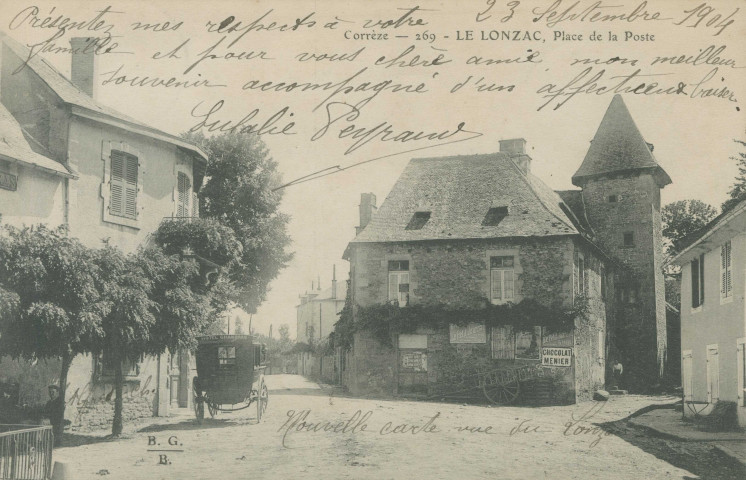 23 Septembre 1904
Présentez mes respects à votre
Corrèze — 269 - LE LONZAC, Place de la Poste
famille et pour vous chère amie, mon meilleur
souvenir accompagné d'un affectueux baiser.
Eulalie Peyraud
CHOCOLAT
MENIER
Nouvelle carte vue du Lonzac
B. G.
B.